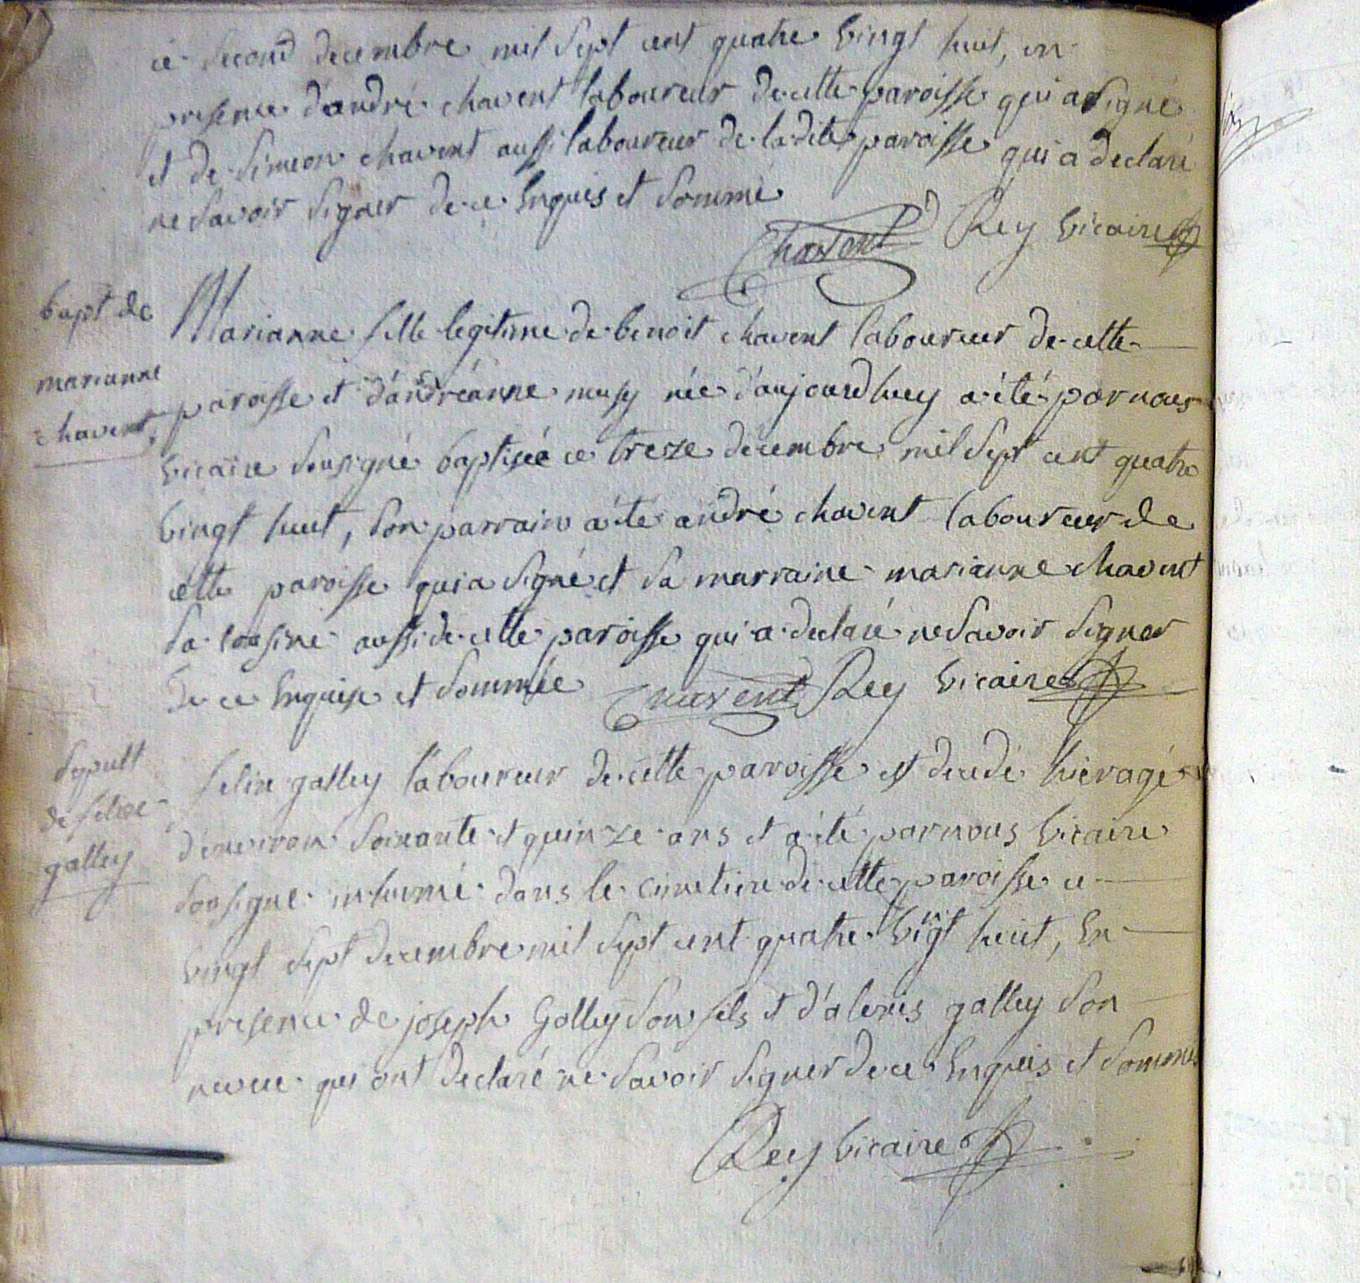 ce second decembre mil sept cent quatre vingt huit, en
presence d'andré chavent laboureur de cette paroisse qui a signé
et de Simeon chavent aussi laboureur de la dite paroisse qui a declaré
ne savoir signer de ce enquis et sommé
Chavent Rey vicaire
bapt de
marianne
chavent
Marianne fille legitime de benoit chavent laboureur de cette
paroisse et d'andréanne musy née d'aujourdhuy a été par nous
vicaire sousigné baptisée ce treze decembre mil sept cent quatre
vingt huit, son parrain a été andré chavent laboureur de
cette paroisse qui a signé et sa marraine marianne chavent
sa cousine aussi de cette paroisse qui a declaré ne savoir signer
de ce enquise et sommée Chavent Rey vicaire
sepult
de felix
galley
felix galley laboureur de cette paroisse est decedé hier agé
d'environ soixante et quinze ans et a été par nous vicaire
sousigné inhumé dans le cimetiere de cette paroisse ce
vingt sept decembre mil sept cent quatre vingt huit, en
presence de joseph Galley son fils et d'alexis galley son
neveu qui ont declaré ne savoir signer de ce enquis et sommés
Rey vicaire